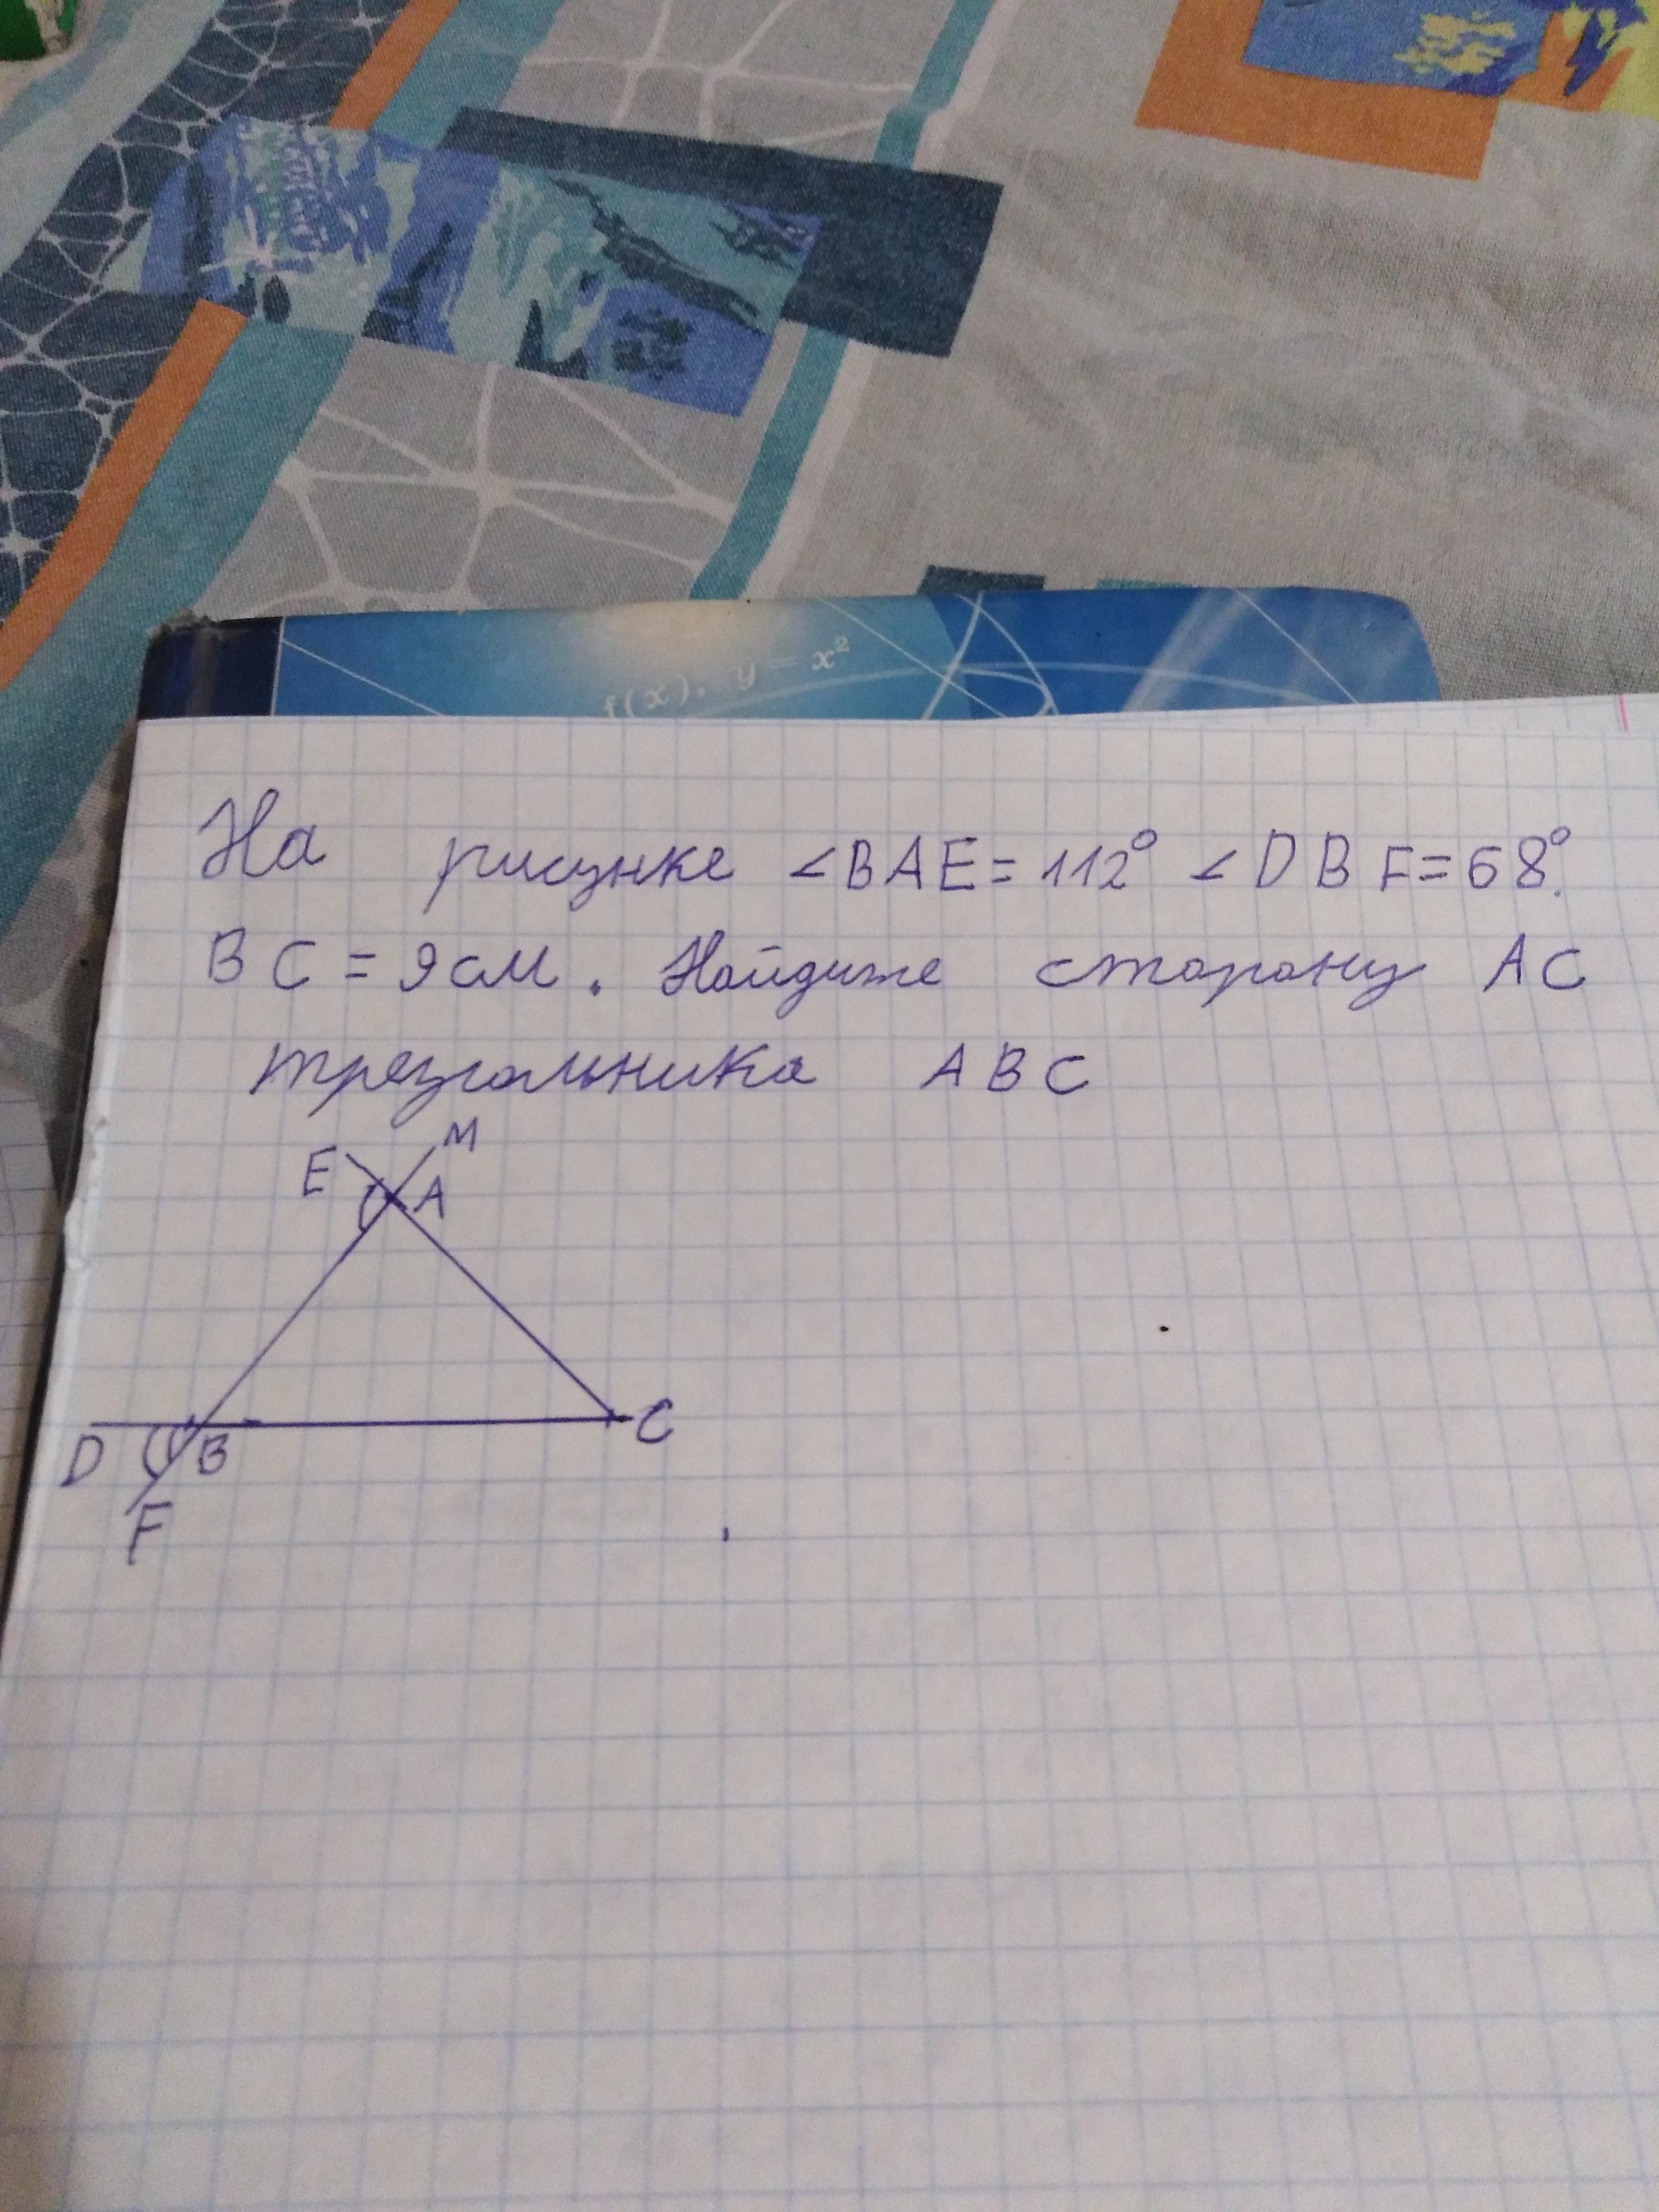 f(x), y = x²
На рисунке ∠BAE=112° ∠DBF=68°.
BC = 9см. Найдите сторону AC
треугольника ABC
E M
A
D B C
F